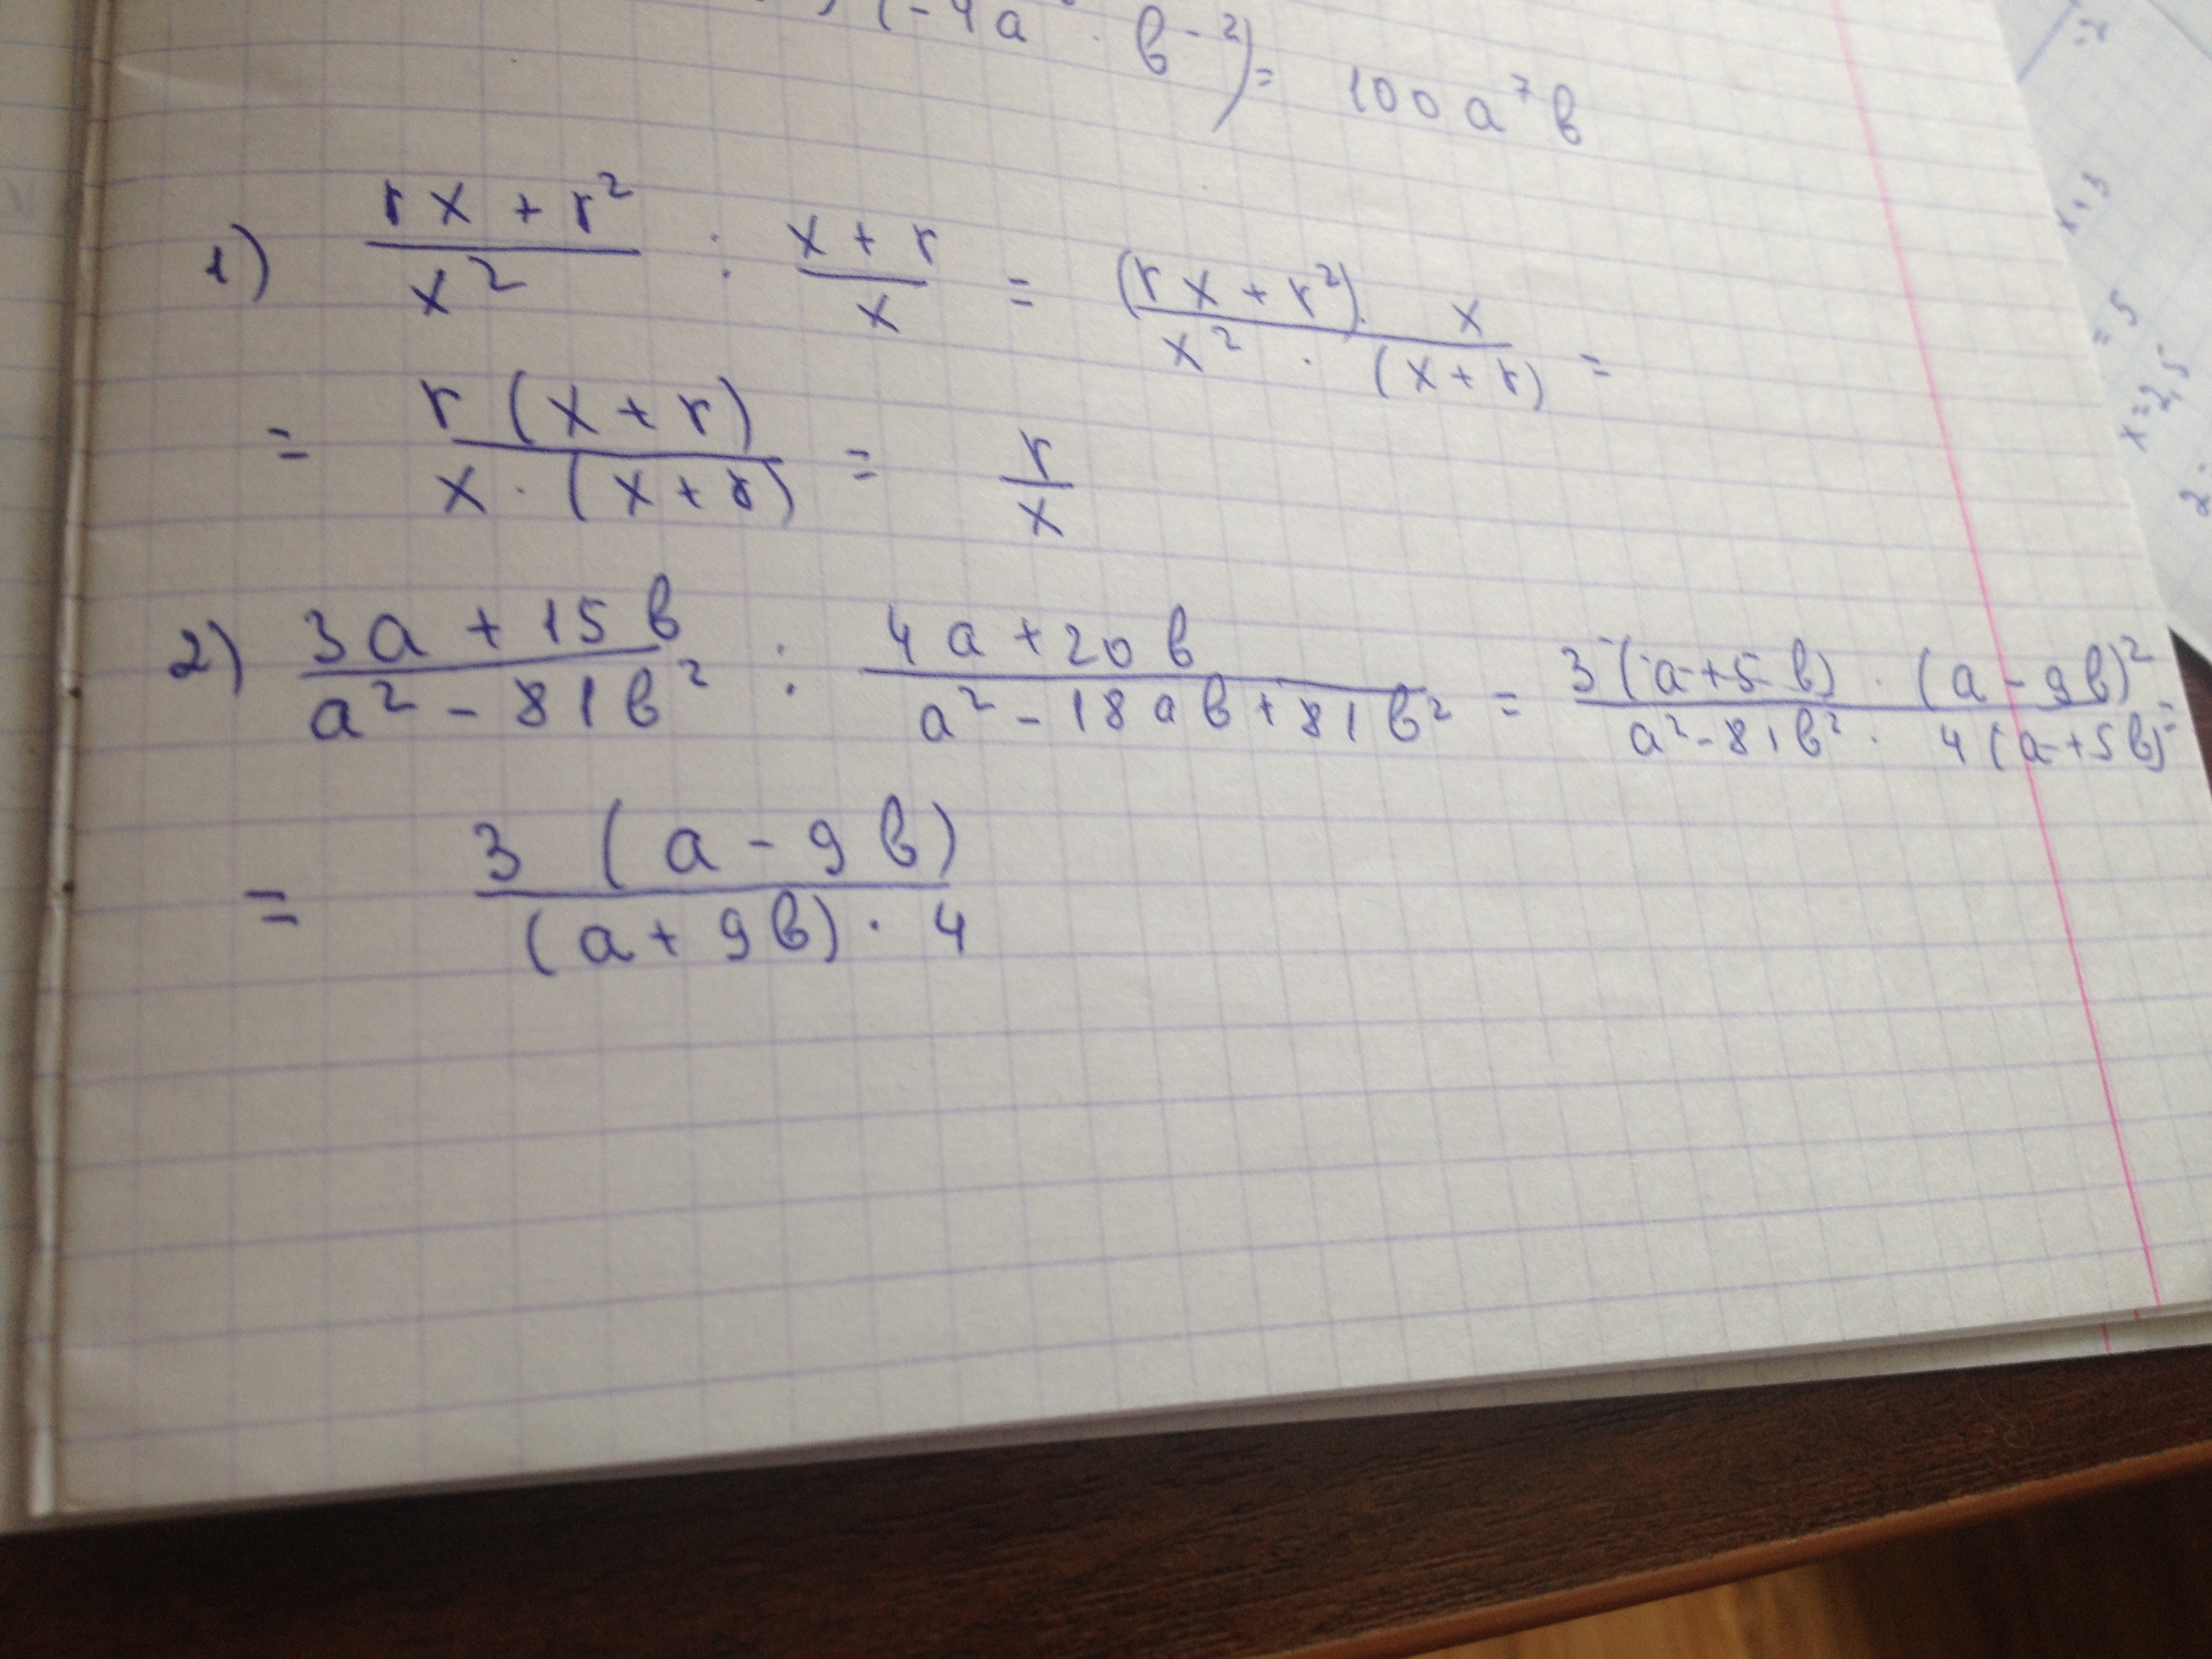 (-4a · b⁻²) = 100a⁷b
1) (rx + r²)/x² : (x + r)/x = ((rx + r²) · x)/(x² · (x + r)) =
= r(x + r)/(x · (x + r)) = r/x
2) (3a + 15b)/(a² - 81b²) : (4a + 20b)/(a² - 18ab + 81b²) = (3(a + 5b) · (a - 9b)²)/(a² - 81b² · 4(a + 5b)) =
= 3(a - 9b)/((a + 9b) · 4)
x + 3
= 5
x = 2,5
2 ·